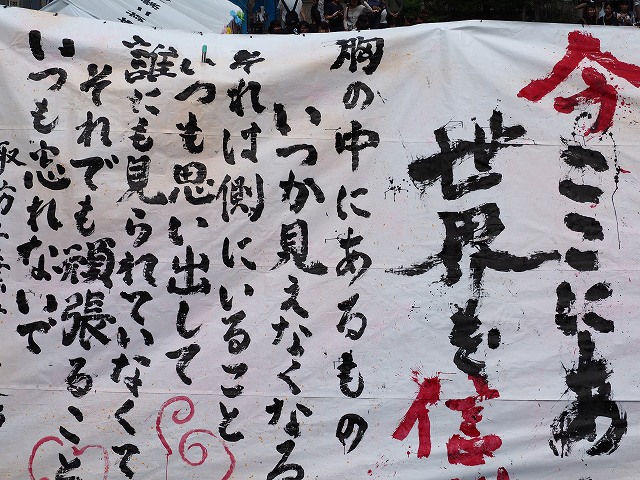 今ここにあ
世界を信
胸の中にあるもの
いつか見えなくなる
それは側にいること
いつも思い出して
誰にも見られていなくて
それでも頑張ること
いつも忘れないで
諏訪